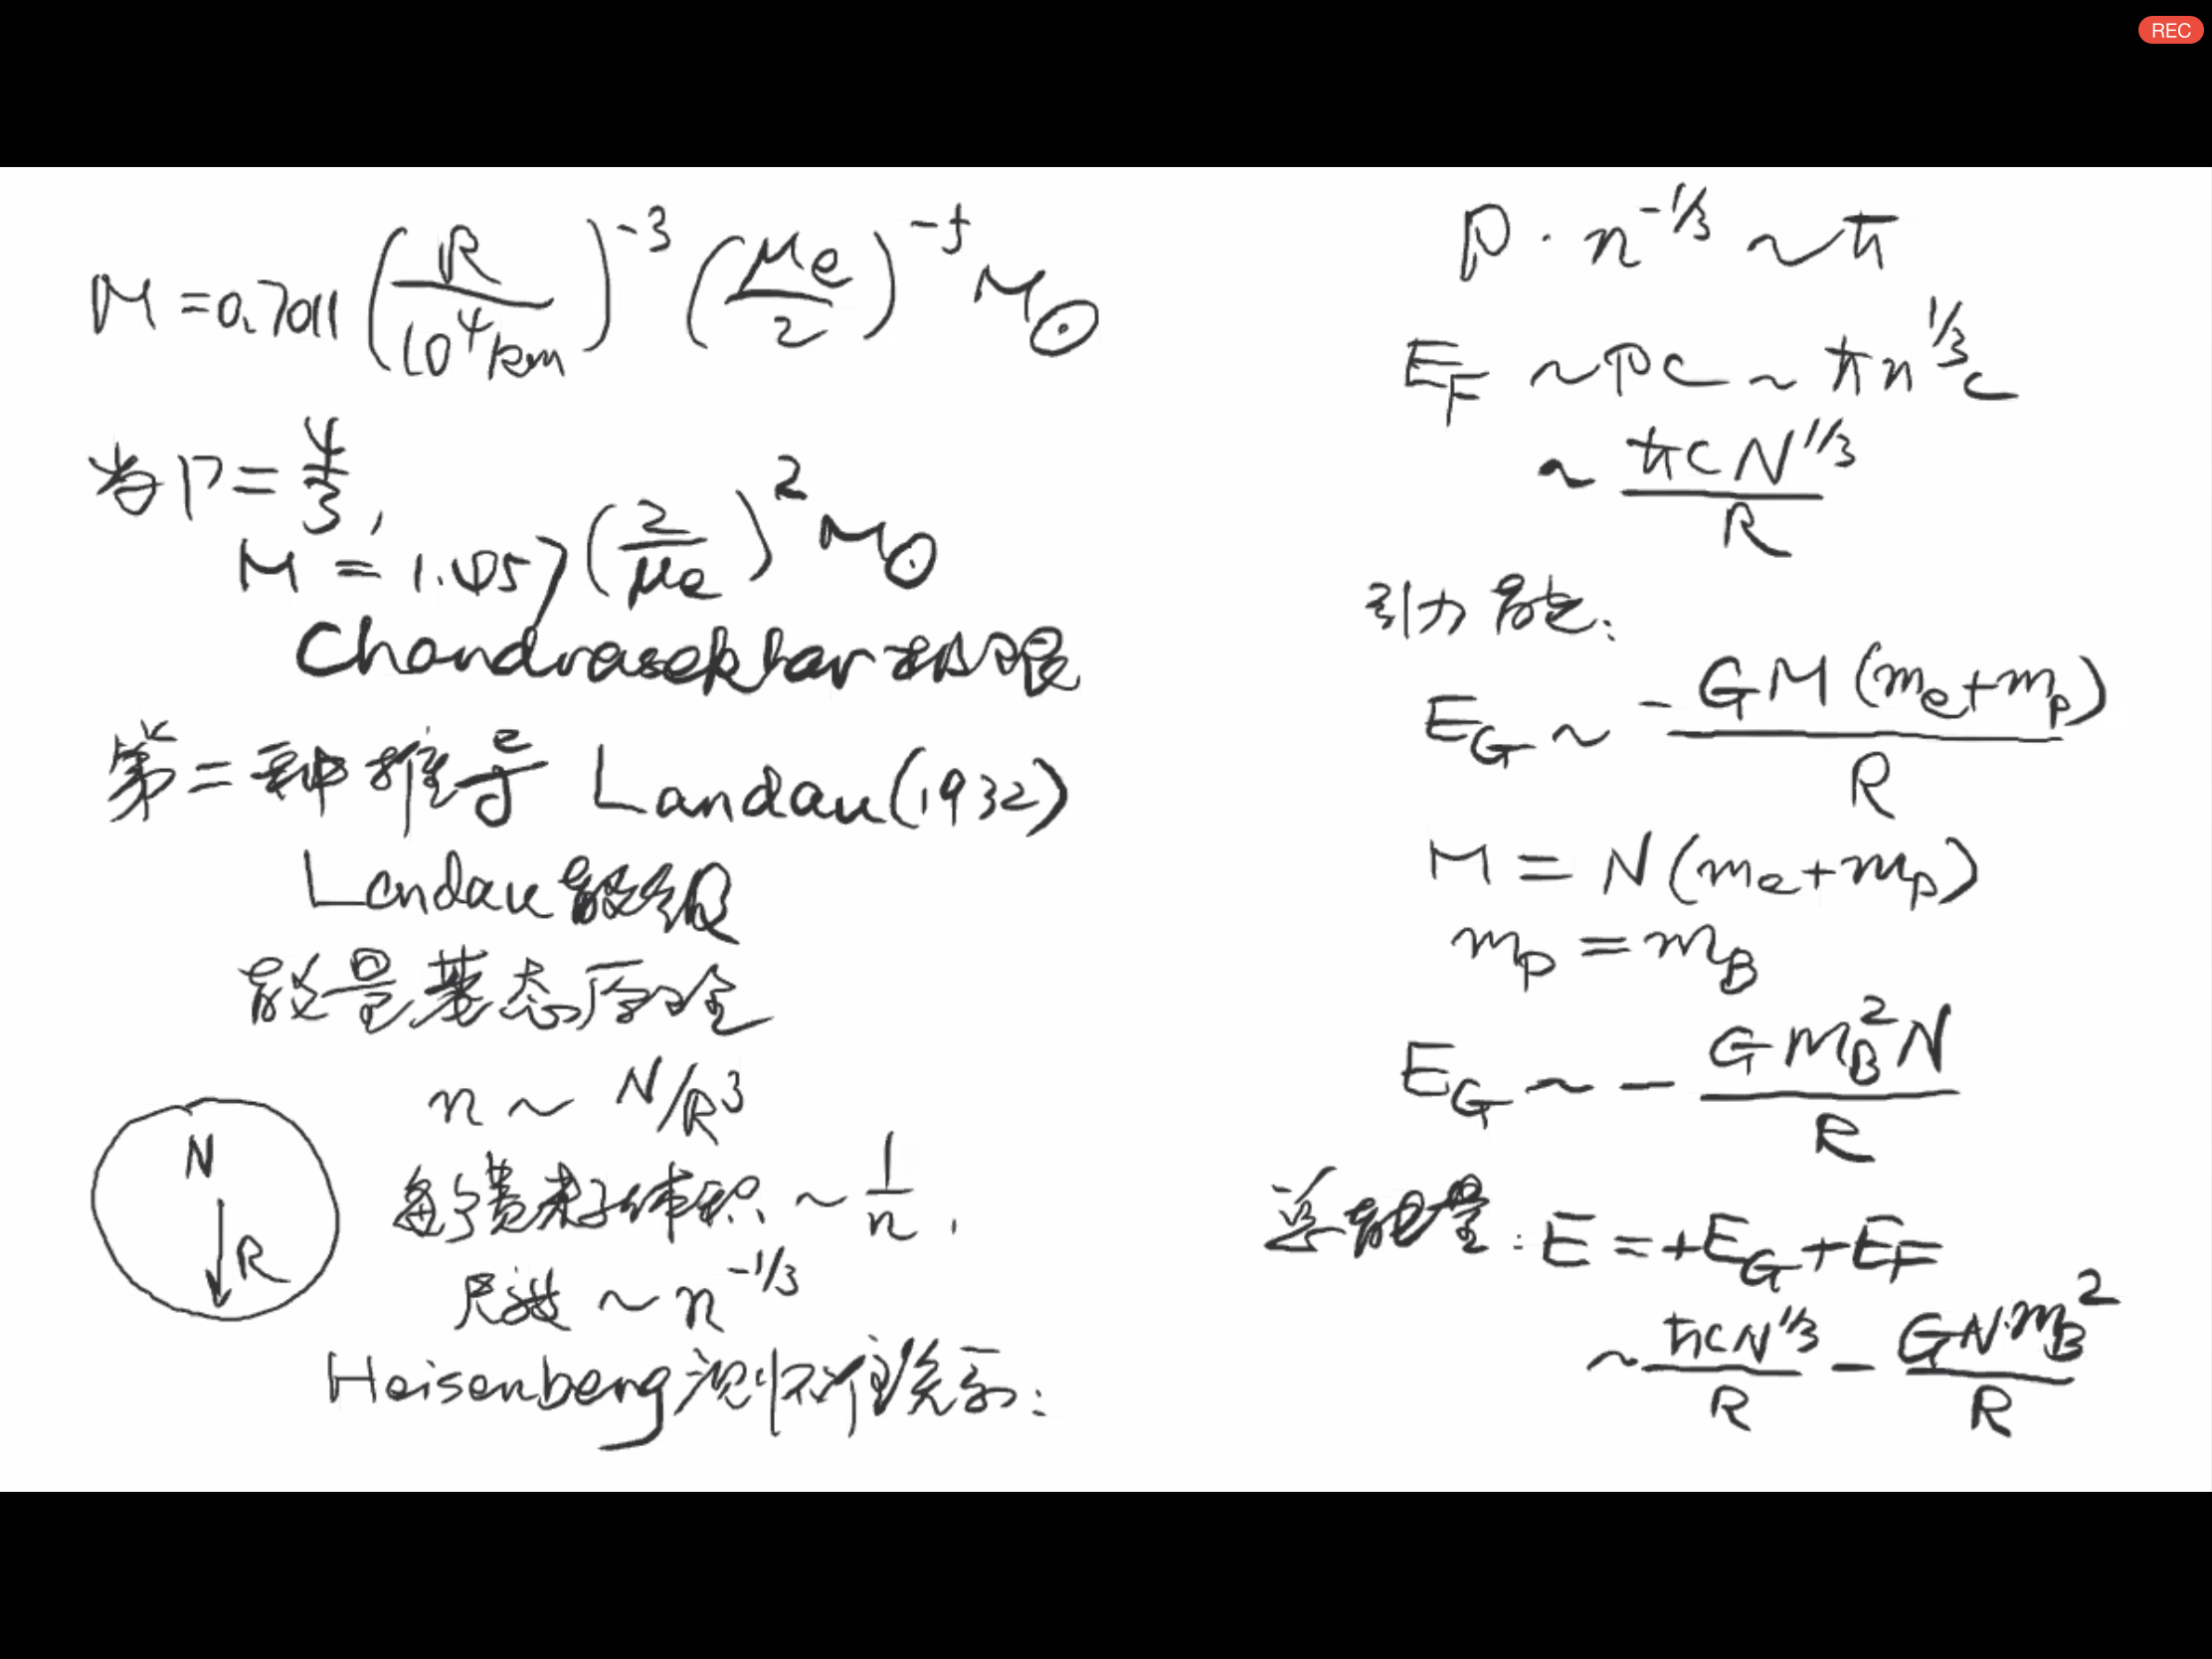 REC
M = 0.7011 (R/10⁴km)⁻³ (μe/2)⁻⁵ M⊙
当 Γ = 4/3,
M = 1.457 (2/μe)² M⊙
Chandrasekhar 极限
第二种推导 Landau (1932)
Landau 能级
能量基态原理
n ~ N/R³
N
R
每个费米子体积 ~ 1/n,
尺度 ~ n^-1/3
Heisenberg 测不准关系:
p · n^-1/3 ~ ħ
E_F ~ pc ~ ħn^1/3 c
~ ħcN^1/3 / R
引力能:
E_G ~ - GM(me+mp) / R
M = N(me+mp)
mp = mB
E_G ~ - GmB²N / R
总能量: E = +E_G + E_F
~ ħcN^1/3 / R - GN·mB² / R